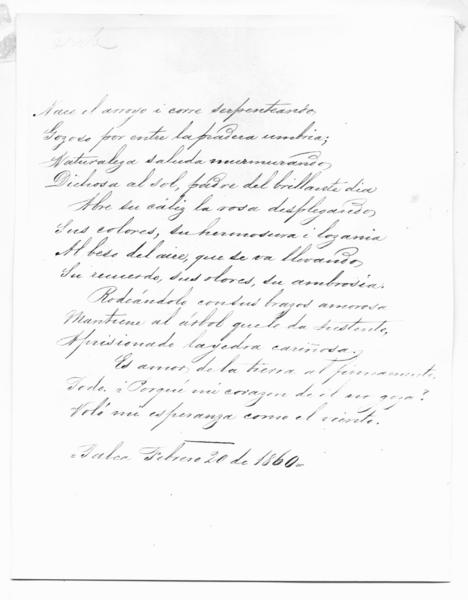 Nace el arroyo i corre serpenteando,
Gozoso por entre la pradera umbria;
Naturaleza saluda murmurando,
Dichosa al sol, padre del brillante dia
Abre su cáliz la rosa desplegando,
Sus colores, su hermosura i lozania
Al beso del aire, que se va llevando,
Su recuerdo, sus olores, su ambrosía.
Rodeándolo con sus brazos amorosa
Mantiene al árbol que le da sustento,
Aprisionado la yedra cariñosa.
Es amor, de la tierra al firmamento,
Todo. ¿Porqué mi corazon de el no goza?
Voló mi esperanza como el viento.
Talca Febrero 20 de 1860